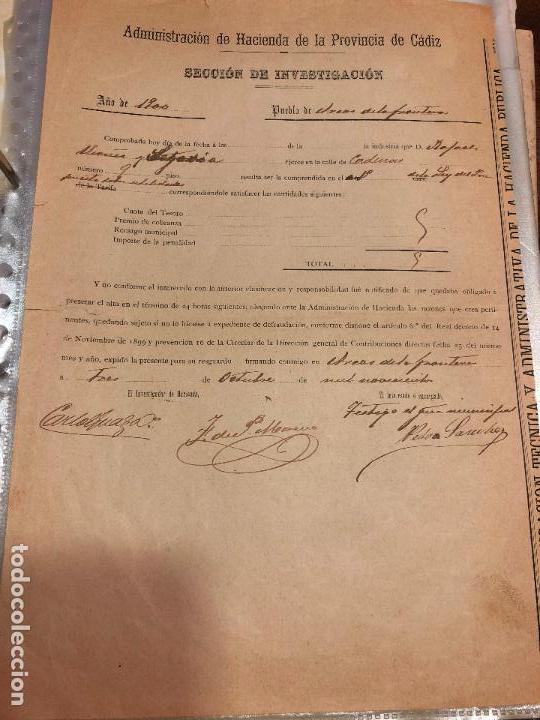 Administración de Hacienda de la Provincia de Cádiz
SECCIÓN DE INVESTIGACIÓN
Año de 1900 Pueblo de Arcos de la Frontera
Comprobada hoy día de la fecha á las de la la industria que D. Rafael
ejerce en la calle de
número piso resulta ser la comprendida en el
de la Tarifa correspondiéndole satisfacer las cantidades siguientes:
Cuota del Tesoro
Premio de cobranza
Recargo municipal
Importe de la penalidad
TOTAL
Y no conforme el interesado con la anterior clasificación y responsabilidad fué notificado de que quedaba obligado á
presentar el alta en el término de 24 horas siguientes, alegando ante la Administración de Hacienda las razones que crea perti-
nentes, quedando sujeto si no lo hiciese á expediente de defraudación, conforme dispone el artículo 6.º del Real decreto de 14
de Noviembre de 1899 y prevención 16 de la Circular de la Dirección general de Contribuciones directas fecha 25 del mismo
mes y año, expido la presente para su resguardo firmando conmigo en Arcos de la Frontera
a tres de Octubre de mil novecientos
El Investigador de Hacienda, El interesado ó encargado,
Testigo el municipal
Pedro Sanchez
TÉCNICA Y ADMINISTRATIVA DE LA HACIENDA PUBLICA
todocoleccion